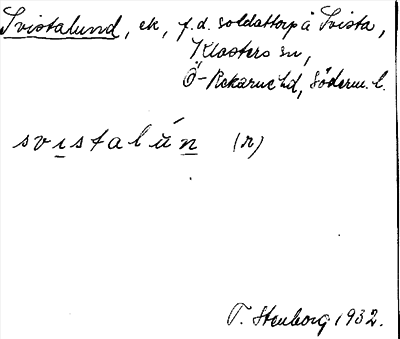 Svistalund, ek, f.d. soldattorp å Svista,
Klosters sn,
Ö-Rekarne hd, Söderm. l.
svistalún (n)
T. Stenborg 1932.